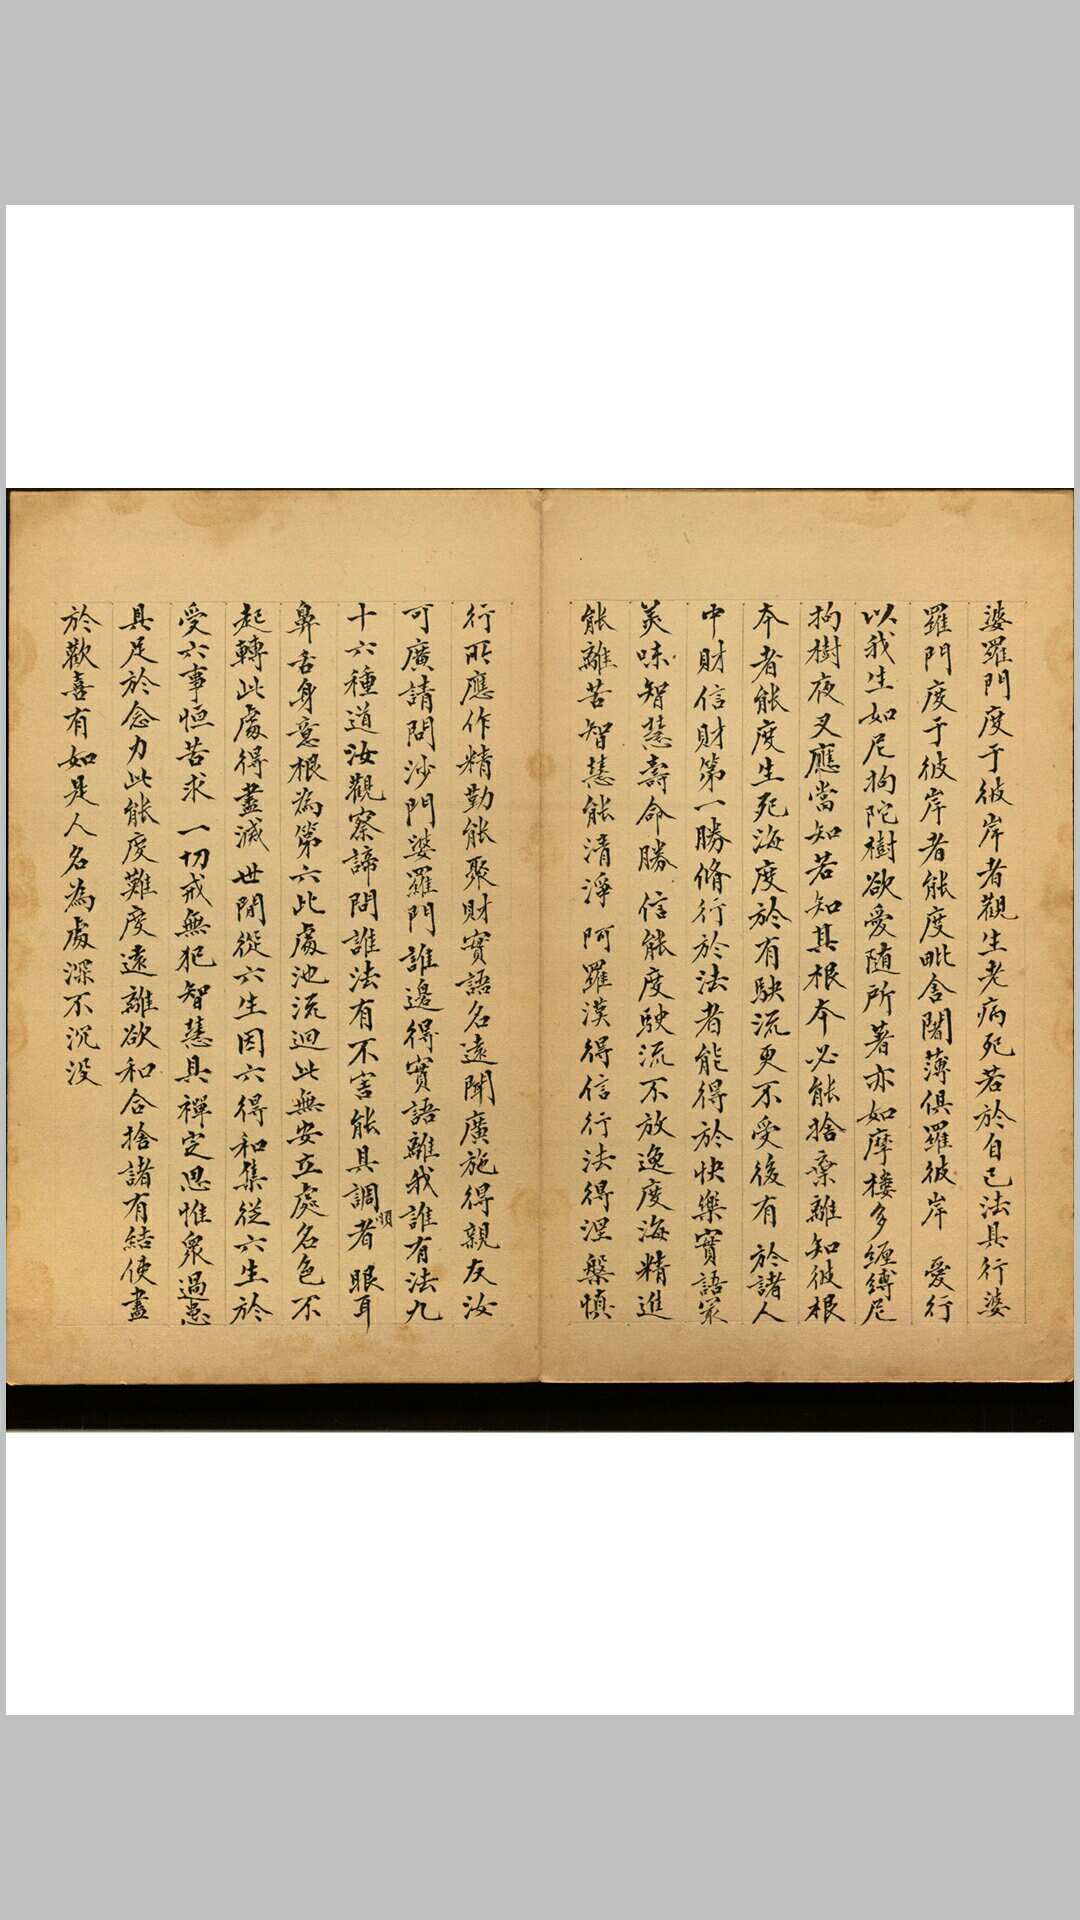 婆羅門度于彼岸者觀生老病死若於自己法具行婆
羅門度于彼岸者能度毗舍闍薄俱羅彼岸　愛行
以我生如尼拘陀樹欲愛隨所著亦如摩樓多纏縛尼
拘樹夜叉應當知若知其根本必能捨棄離知彼根
本者能度生死海度於有駛流更不受後有　於諸人
中財信財第一勝脩行於法者能得於快樂實語冣
美味智慧壽命勝信能度駛流不放逸度海精進
能離苦智慧能清淨　阿羅漢得信行法得涅槃慎
行所應作精勤能聚財實語名遠聞廣施得親友汝
可廣請問沙門婆羅門誰邊得實語離我誰有法九
十六種道汝觀察諦問誰法有不害能具調順者　眼耳
鼻舌身意根為第六此處池流迴此無安立處名色不
起轉此處得盡滅　世間從六生因六得和集從六生於
受六事恒苦求　一切戒無犯智慧具禪定思惟衆過患
具足於念力此能度難度遠離欲和合捨諸有結使盡
於歡喜有如是人名為處深不沉没